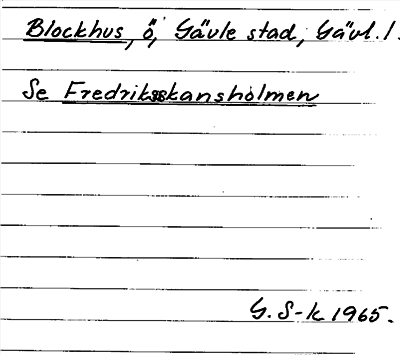 Blockhus, ö, Gävle stad, Gävl. l.
Se Fredriksskansholmen
G. S-k 1965.